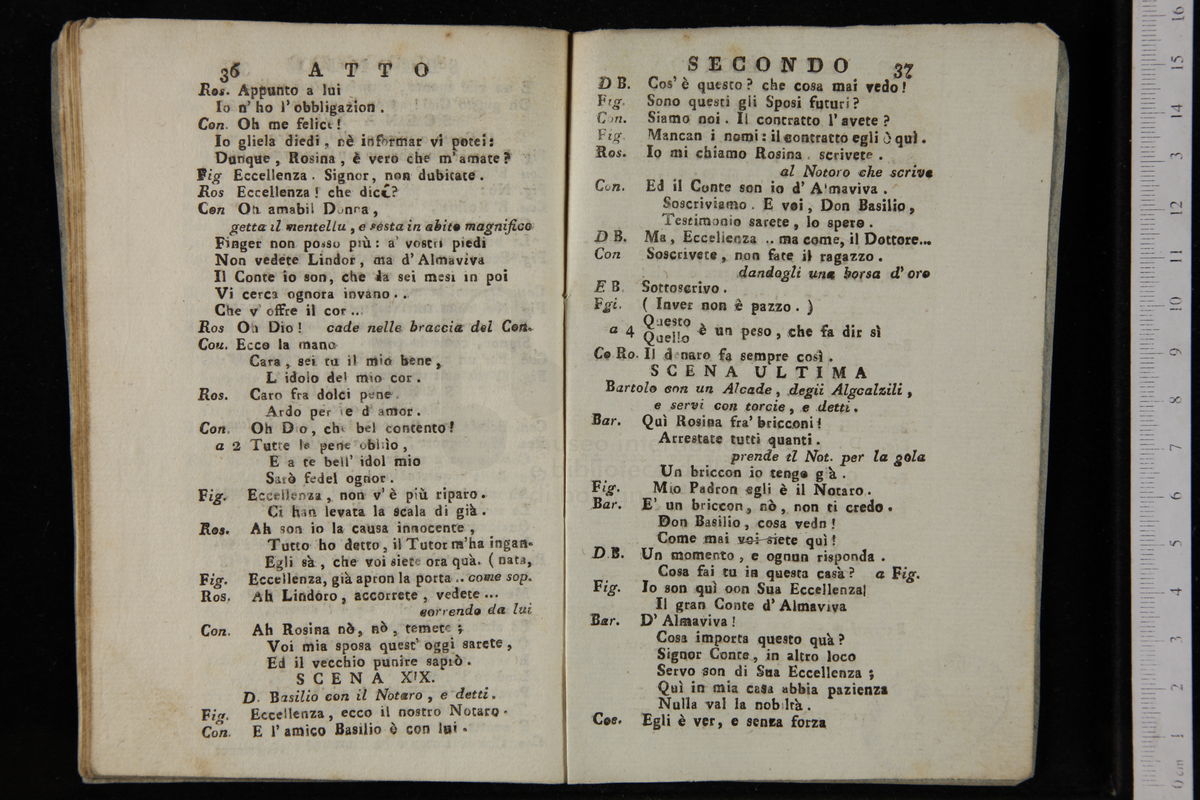 36 ATTO
Ros. Appunto a lui
Io n' ho l' obbligazion.
Con. Oh me felice!
Io gliela diedi, nè informar vi potei:
Dunque, Rosina, è vero che m' amate?
Fig Eccellenza. Signor, non dubitate.
Ros Eccellenza! che dice?
Con Oh amabil Donna,
getta il mentellu, e resta in abito magnifico
Finger non posso più: a' vostri piedi
Non vedete Lindor, ma d' Almaviva
Il Conte io son, che da sei mesi in poi
Vi cerca ognora invano..
Che v' offre il cor...
Ros Oh Dio! cade nelle braccia del Con.
Cou. Ecco la mano
Cara, sei tu il mio bene,
L' idolo del mio cor.
Ros. Caro fra dolci pene.
Ardo per te d' amor.
Con. Oh Dio, che bel contento!
a 2 Tutte le pene obblìo,
E a te bell' idol mio
Sarò fedel ognor.
Fig. Eccellenza, non v' è più riparo.
Ci han levata la scala di già.
Ros. Ah son io la causa innocente,
Tutto ho detto, il Tutor m'ha ingan-
Egli sà, che voi siete ora quà. (nata,
Fig. Eccellenza, già apron la porta.. come sop.
Ros. Ah Lindoro, accorrete, vedete...
correndo da lui
Con. Ah Rosina nò, nò, temete;
Voi mia sposa quest' oggi sarete,
Ed il vecchio punire saprò.
SCENA XIX.
D. Basilio con il Notaro, e detti.
Fig. Eccellenza, ecco il nostro Notaro.
Con. E l' amico Basilio è con lui.
SECONDO 37
D B. Cos' è questo? che cosa mai vedo!
Fig. Sono questi gli Sposi futuri?
Con. Siamo noi. Il contratto l' avete?
Fig. Mancan i nomi: il contratto egli è quì.
Ros. Io mi chiamo Rosina. scrivete.
al Notoro che scrive
Con. Ed il Conte son io d' Almaviva.
Soscriviamo. E voi, Don Basilio,
Testimonio sarete, lo spero.
D B. Ma, Eccellenza.. ma come, il Dottore...
Con Soscrivete, non fate il ragazzo.
dandogli una borsa d' oro
E B. Sottoscrivo.
Fgi. (Inver non è pazzo.)
a 4 Questo
Quello è un peso, che fa dir sì
Co Ro. Il denaro fa sempre così.
SCENA ULTIMA
Bartolo con un Alcade, degii Algcalzili,
e servi con torcie, e detti.
Bar. Quì Rosina fra' bricconi!
Arrestate tutti quanti.
prende il Not. per la gola
Un briccon io tengo già.
Fig. Mio Padron egli è il Notaro.
Bar. E' un briccon, nò, non ti credo.
Don Basilio, cosa vedn!
Come mai voi siete quì!
D.B. Un momento, e ognun risponda.
Cosa fai tu in questa casà? a Fig.
Fig. Io son quì oon Sua Eccellenza!
Il gran Conte d' Almaviva
Bar. D' Almaviva!
Cosa importa questo quà?
Signor Conte, in altro loco
Servo son di Sua Eccellenza;
Quì in mia casa abbia pazienza
Nulla val la nobiltà.
Cos. Egli è ver, e senza forza